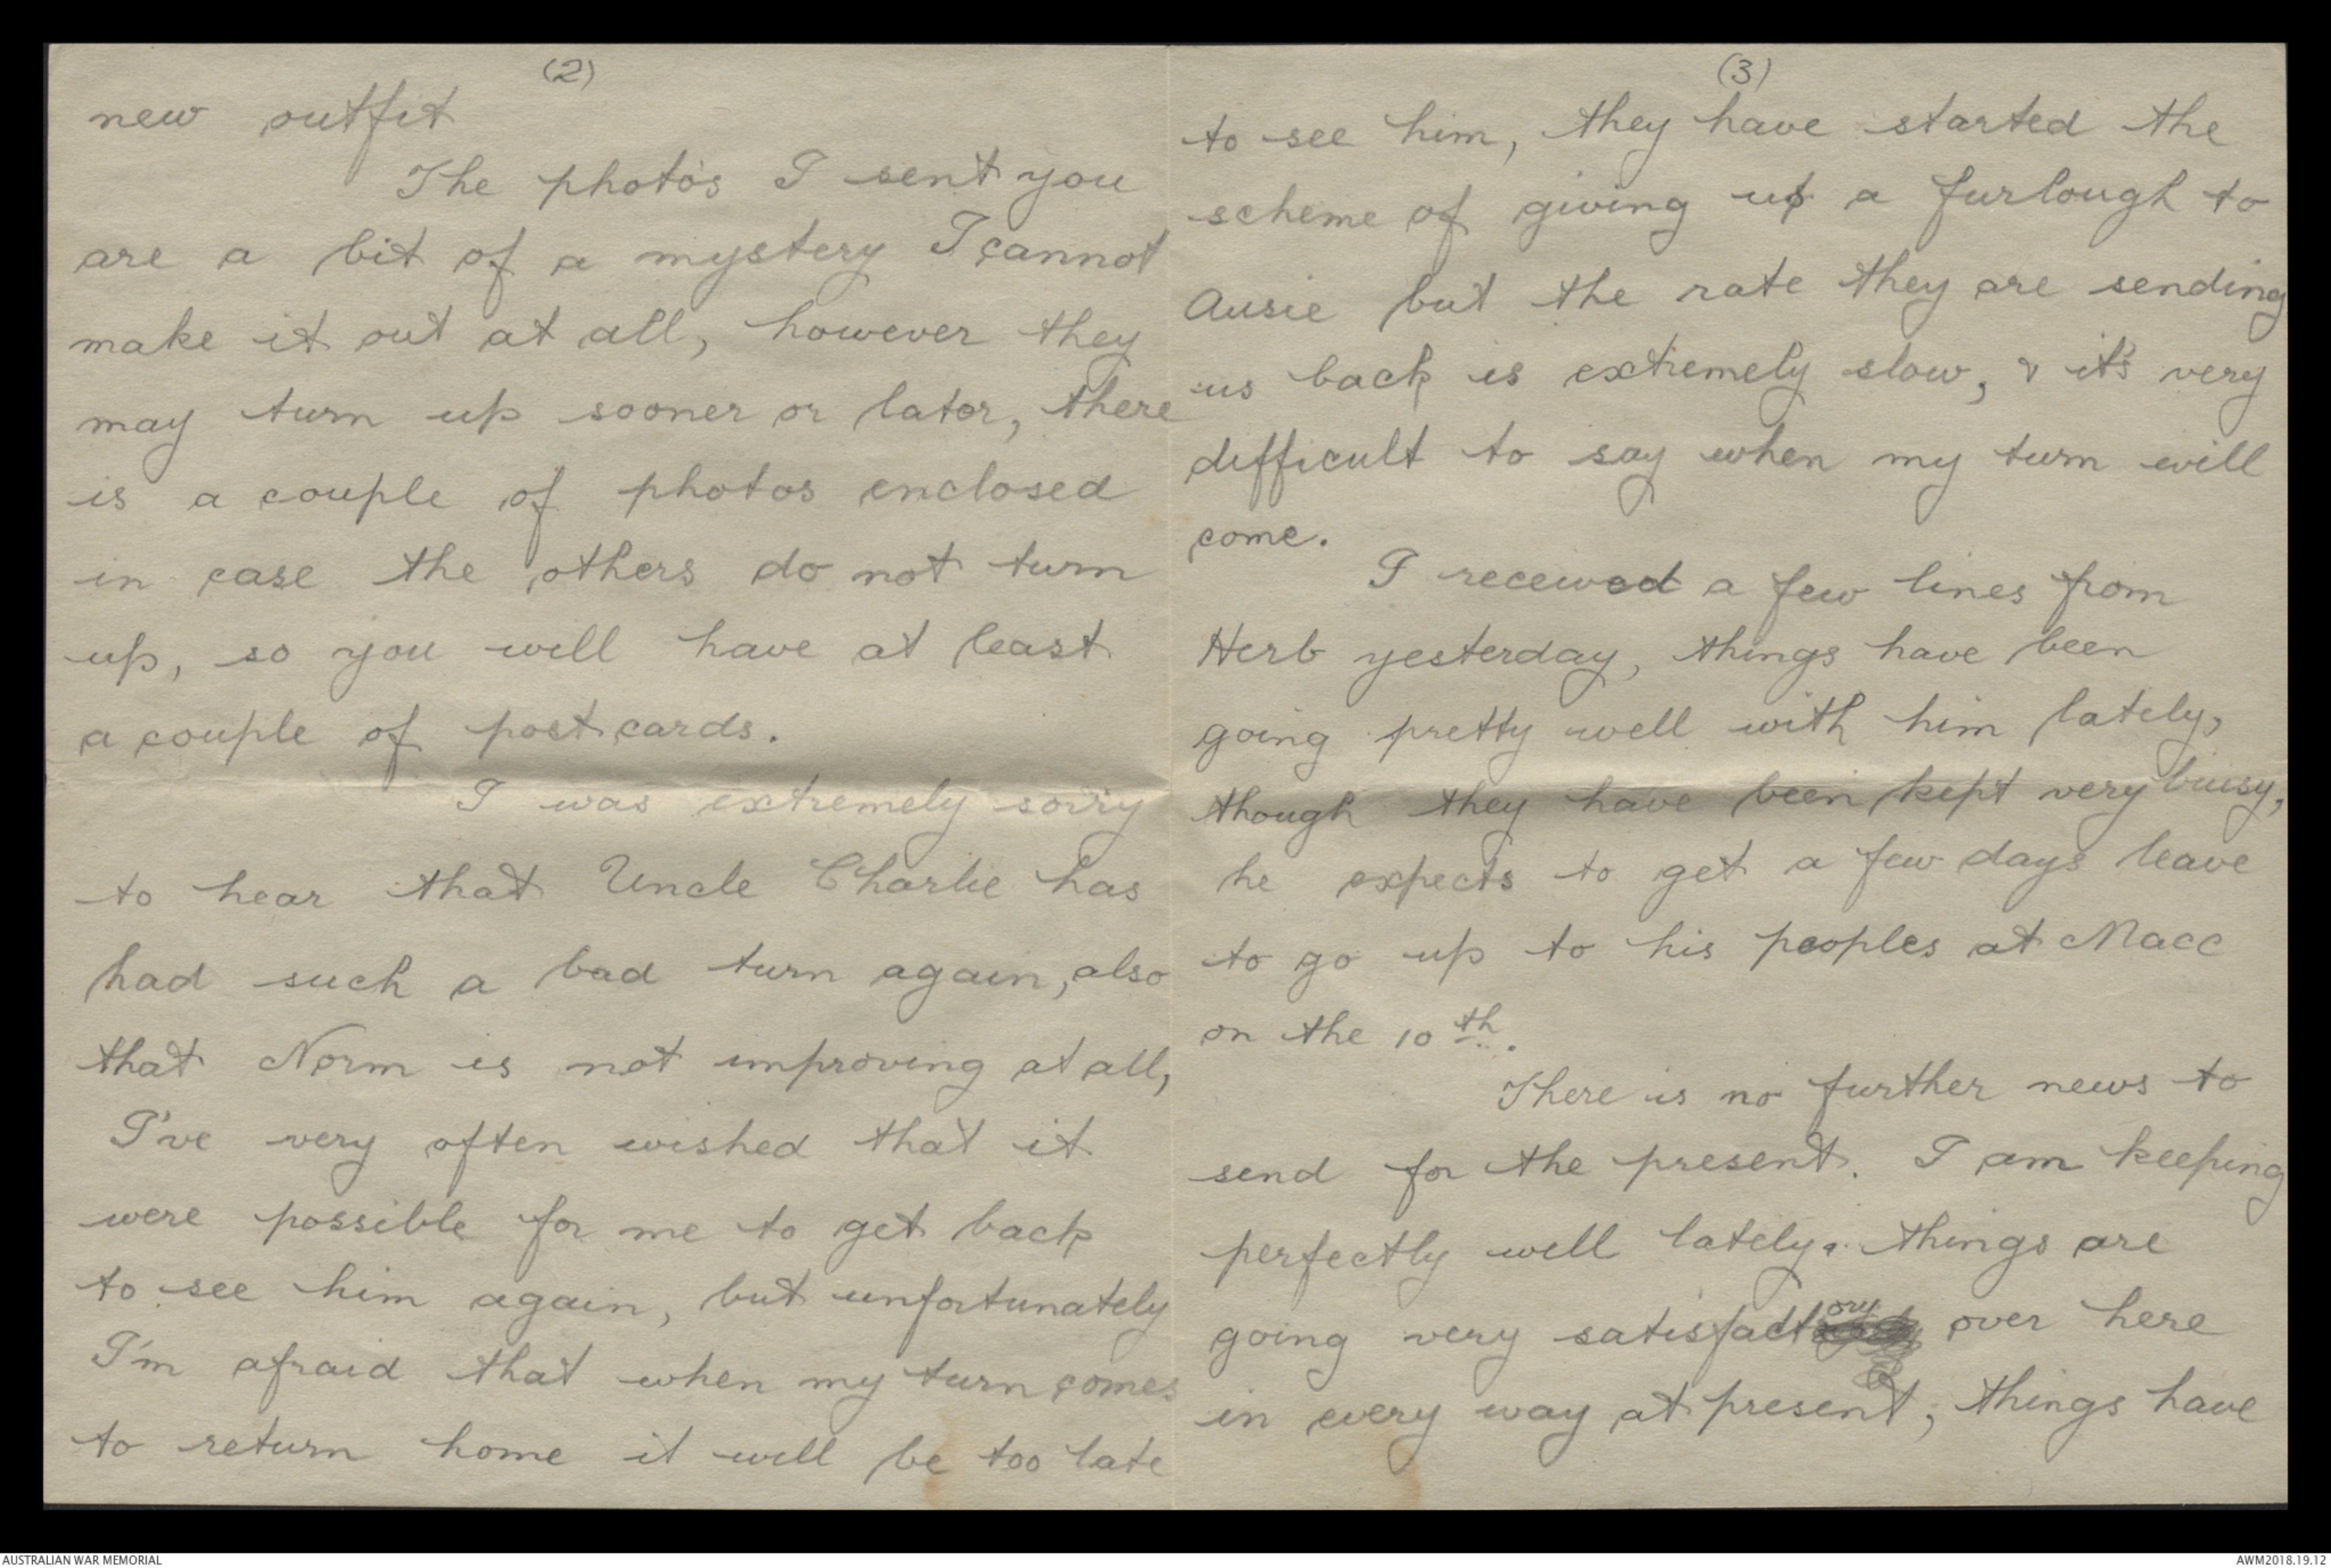 (2)
new outfit
The photo's I sent you
are a bit of a mystery I cannot
make it out at all, however they
may turn up sooner or later, there
is a couple of photos enclosed
in case the others do not turn
up, so you will have at least
a couple of post cards.
I was extremely sorry
to hear that Uncle Charlie has
had such a bad turn again, also
that Norm is not improving at all,
I've very often wished that it
were possible for me to get back
to see him again, but unfortunately
I'm afraid that when my turn comes
to return home it will be too late
(3)
to see him, they have started the
scheme of giving us a furlough to
Ausie but the rate they are sending
us back is extremely slow, & it's very
difficult to say when my turn will
come.
I received a few lines from
Herb yesterday, things have been
going pretty well with him lately,
though they have been kept very buisy,
he expects to get a few days leave
to go up to his peoples at Macc
on the 10th.
There is no further news to
send for the present. I am keeping
perfectly well lately. things are
going very satisfactory over here
in every way at present, things have
AUSTRALIAN WAR MEMORIAL
AWM2018.19.12